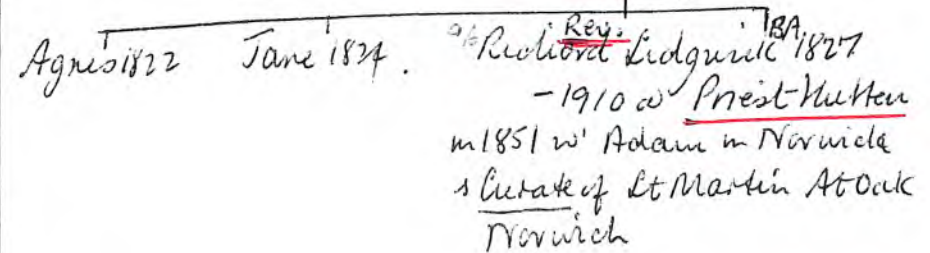 Rev. BA
Agnes 1822 Jane 1824. Richard Sidgwick 1827
-1910 Priest-Hutton
m 1851 w' Adam in Norwich
s Curate of St Martin At Oak
Norwich